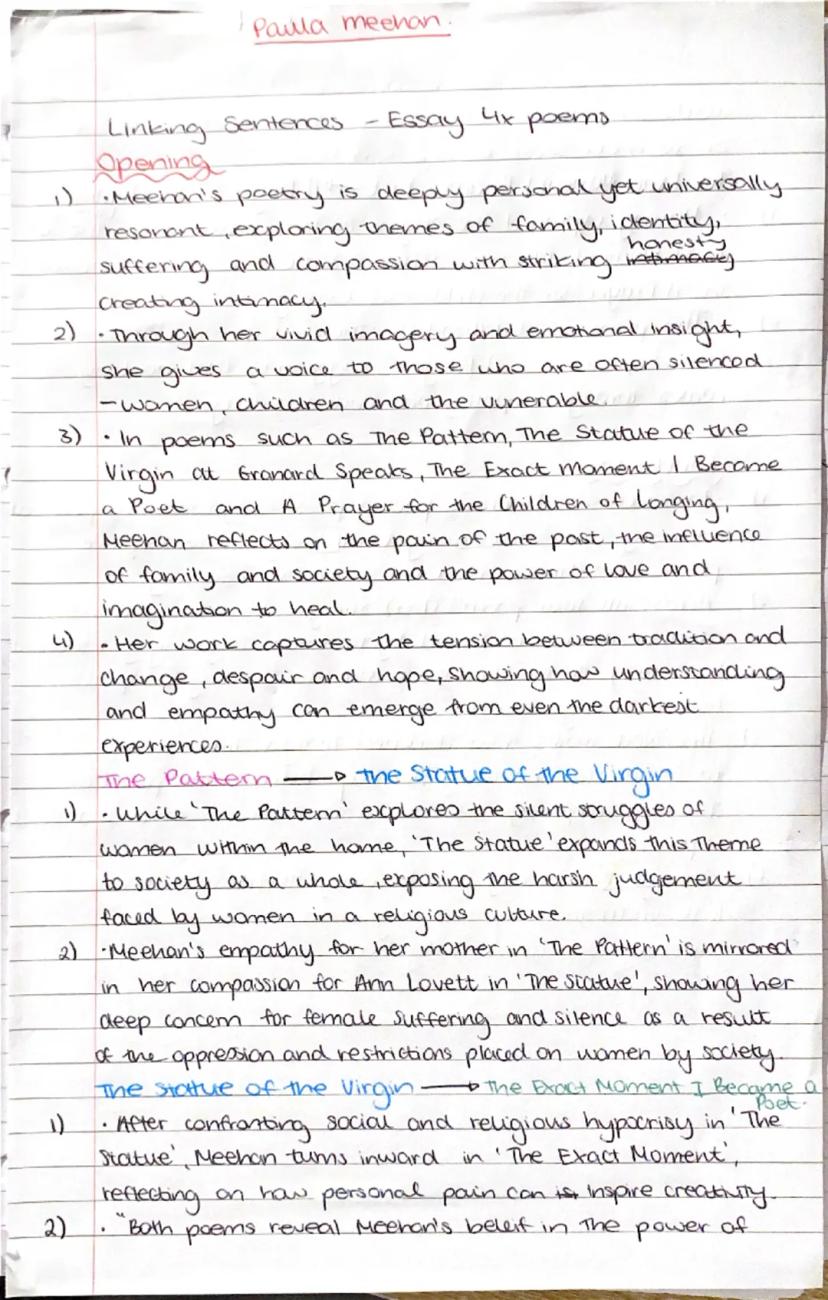 Paula Meehan.
Linking Sentences - Essay 4x poems
Opening
1) · Meehan's poetry is deeply personal yet universally
resonant, exploring themes of family, identity,
honesty
suffering and compassion with striking intimacy
creating intimacy.
2) · Through her vivid imagery and emotional insight,
she gives a voice to those who are often silenced
- women, children and the vunerable.
3) · In poems such as The Pattern, The Statue of the
Virgin at Granard Speaks, The Exact Moment I Became
a Poet and A Prayer for the Children of Longing,
Meehan reflects on the pain of the past, the influence
of family and society and the power of love and
imagination to heal.
4) · Her work captures the tension between tradition and
change, despair and hope, showing how understanding
and empathy can emerge from even the darkest
experiences.
The Pattern → the Statue of the Virgin
1) · While 'The Pattern' explores the silent struggles of
women within the home, 'The Statue' expands this Theme
to society as a whole, exposing the harsh judgement
faced by women in a religious culture.
2) · Meehan's empathy for her mother in 'The Pattern' is mirrored
in her compassion for Ann Lovett in 'The Statue', showing her
deep concern for female suffering and silence as a result
of the oppression and restrictions placed on women by society.
The Statue of the Virgin → The Exact Moment I Became a
Poet.
1) · After confronting social and religious hypocrisy in 'The
Statue', Meehan turns inward in 'The Exact Moment',
reflecting on how personal pain can is inspire creativity.
2) · "Both poems reveal Meehan's beleif in the power of